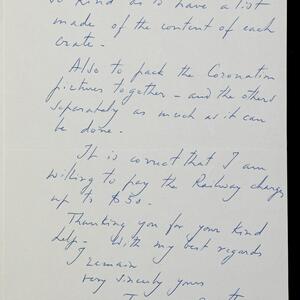 so kind as is have a list
made of the content of each
crate.
Also to pack the Coronation
pictures together - and the others
separately as much as it can
be done.
It is correct that I am
willing to pay the Railway charges
up to $50.
Thanking you for your kind
help - With my best regards
I remain
very sincerely yours